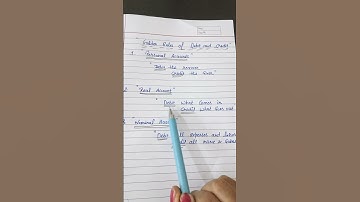 "Golden Rules of Debit and Credit"
1. "Personal Account"
"Debit the receiver
Credit the Giver."
2. "Real Account"
"Debit what comes in
Credit what Goes out
Nominal
"Debit all expenses and
all